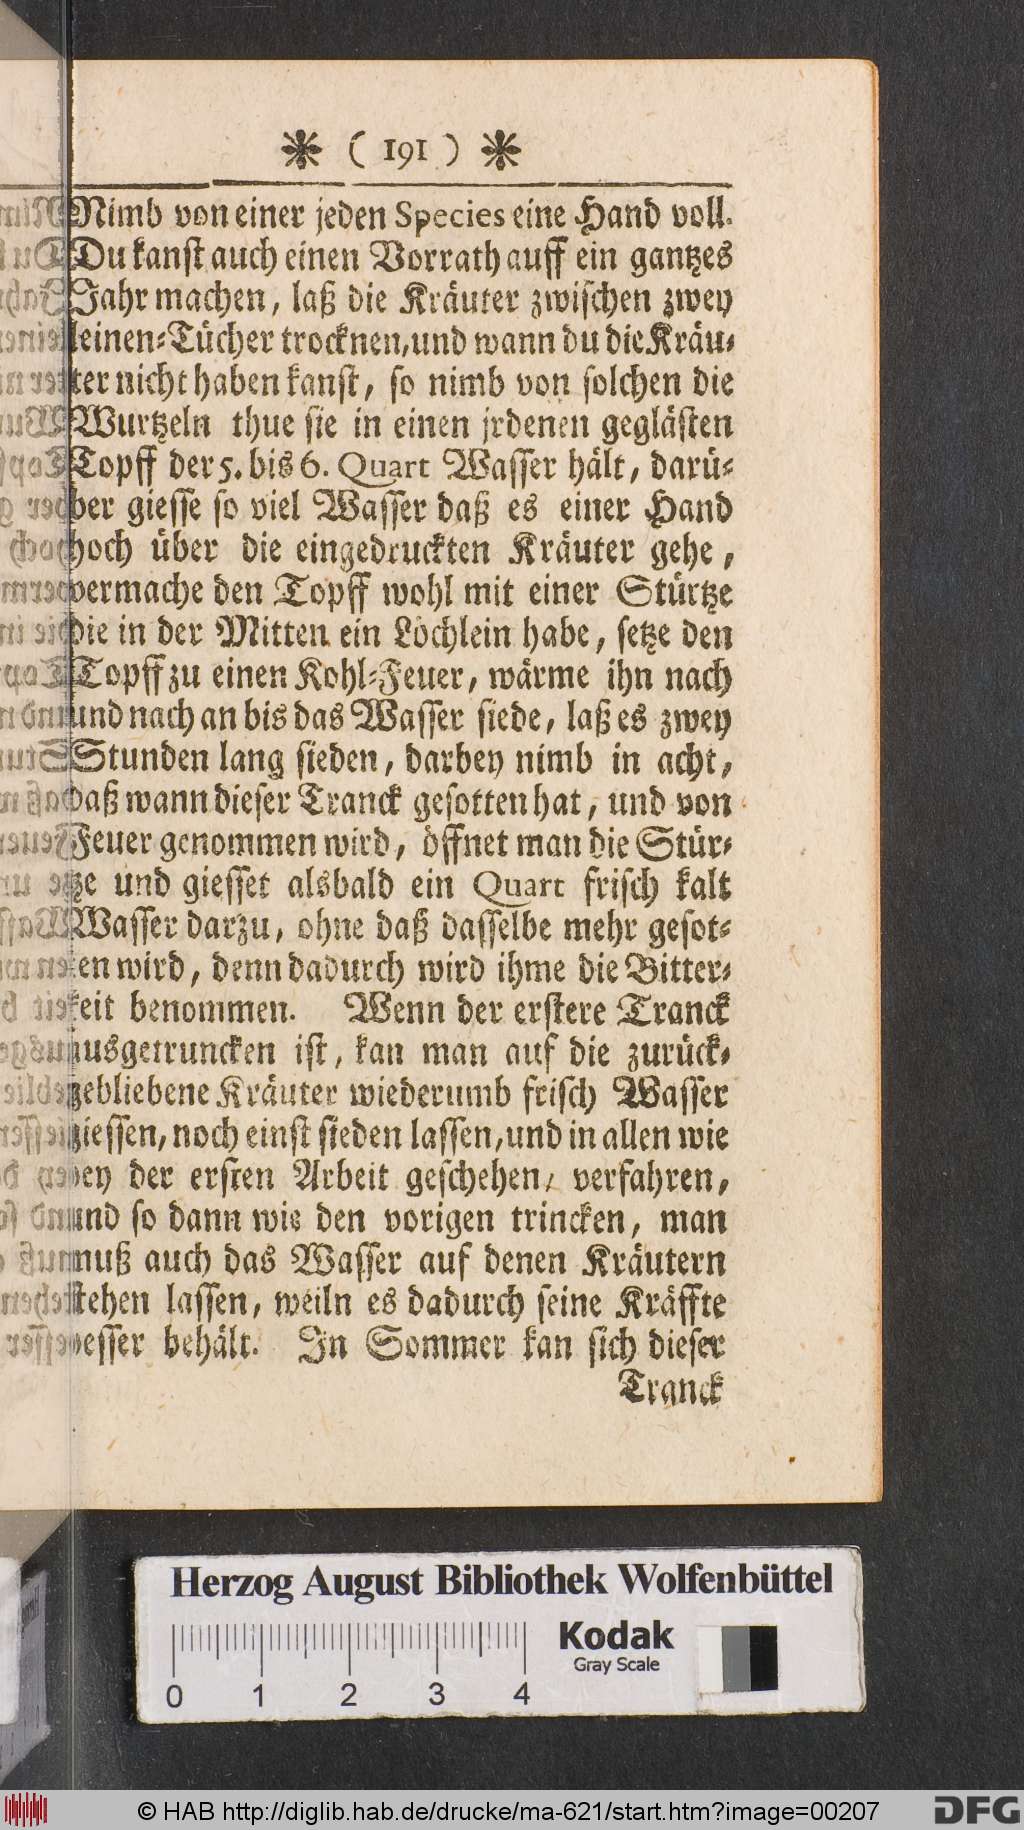 ❋ ( 191 ) ❋
Nimb von einer jeden Species eine Hand voll.
Du kanst auch einen Vorrath auff ein gantzes
Jahr machen, laß die Kräuter zwischen zwey
leinen-Tücher trocknen, und wann du die Kräu-
ter nicht haben kanst, so nimb von solchen die
Wurtzeln thue sie in einen jrdenen geglästen
Topff der 5. bis 6. Quart Wasser hält, darü-
ber giesse so viel Wasser daß es einer Hand
hoch über die eingedruckten Kräuter gehe,
vermache den Topff wohl mit einer Stürtze
die in der Mitten ein Löchlein habe, setze den
Topff zu einen Kohl-Feuer, wärme ihn nach
und nach an bis das Wasser siede, laß es zwey
Stunden lang sieden, darbey nimb in acht,
daß wann dieser Tranck gesotten hat, und von
Feuer genommen wird, öffnet man die Stür-
tze und giesset alsbald ein Quart frisch kalt
Wasser darzu, ohne daß dasselbe mehr gesot-
ten wird, denn dadurch wird ihme die Bitter-
keit benommen. Wenn der erstere Tranck
ausgetruncken ist, kan man auf die zurück-
gebliebene Kräuter wiederumb frisch Wasser
giessen, noch einst sieden lassen, und in allen wie
bey der ersten Arbeit geschehen, verfahren,
und so dann wie den vorigen trincken, man
muß auch das Wasser auf denen Kräutern
stehen lassen, weiln es dadurch seine Kräffte
besser behält. In Sommer kan sich dieser
Tranck
Herzog August Bibliothek Wolfenbüttel
Kodak
Gray Scale
0 1 2 3 4
© HAB http://diglib.hab.de/drucke/ma-621/start.htm?image=00207
DFG